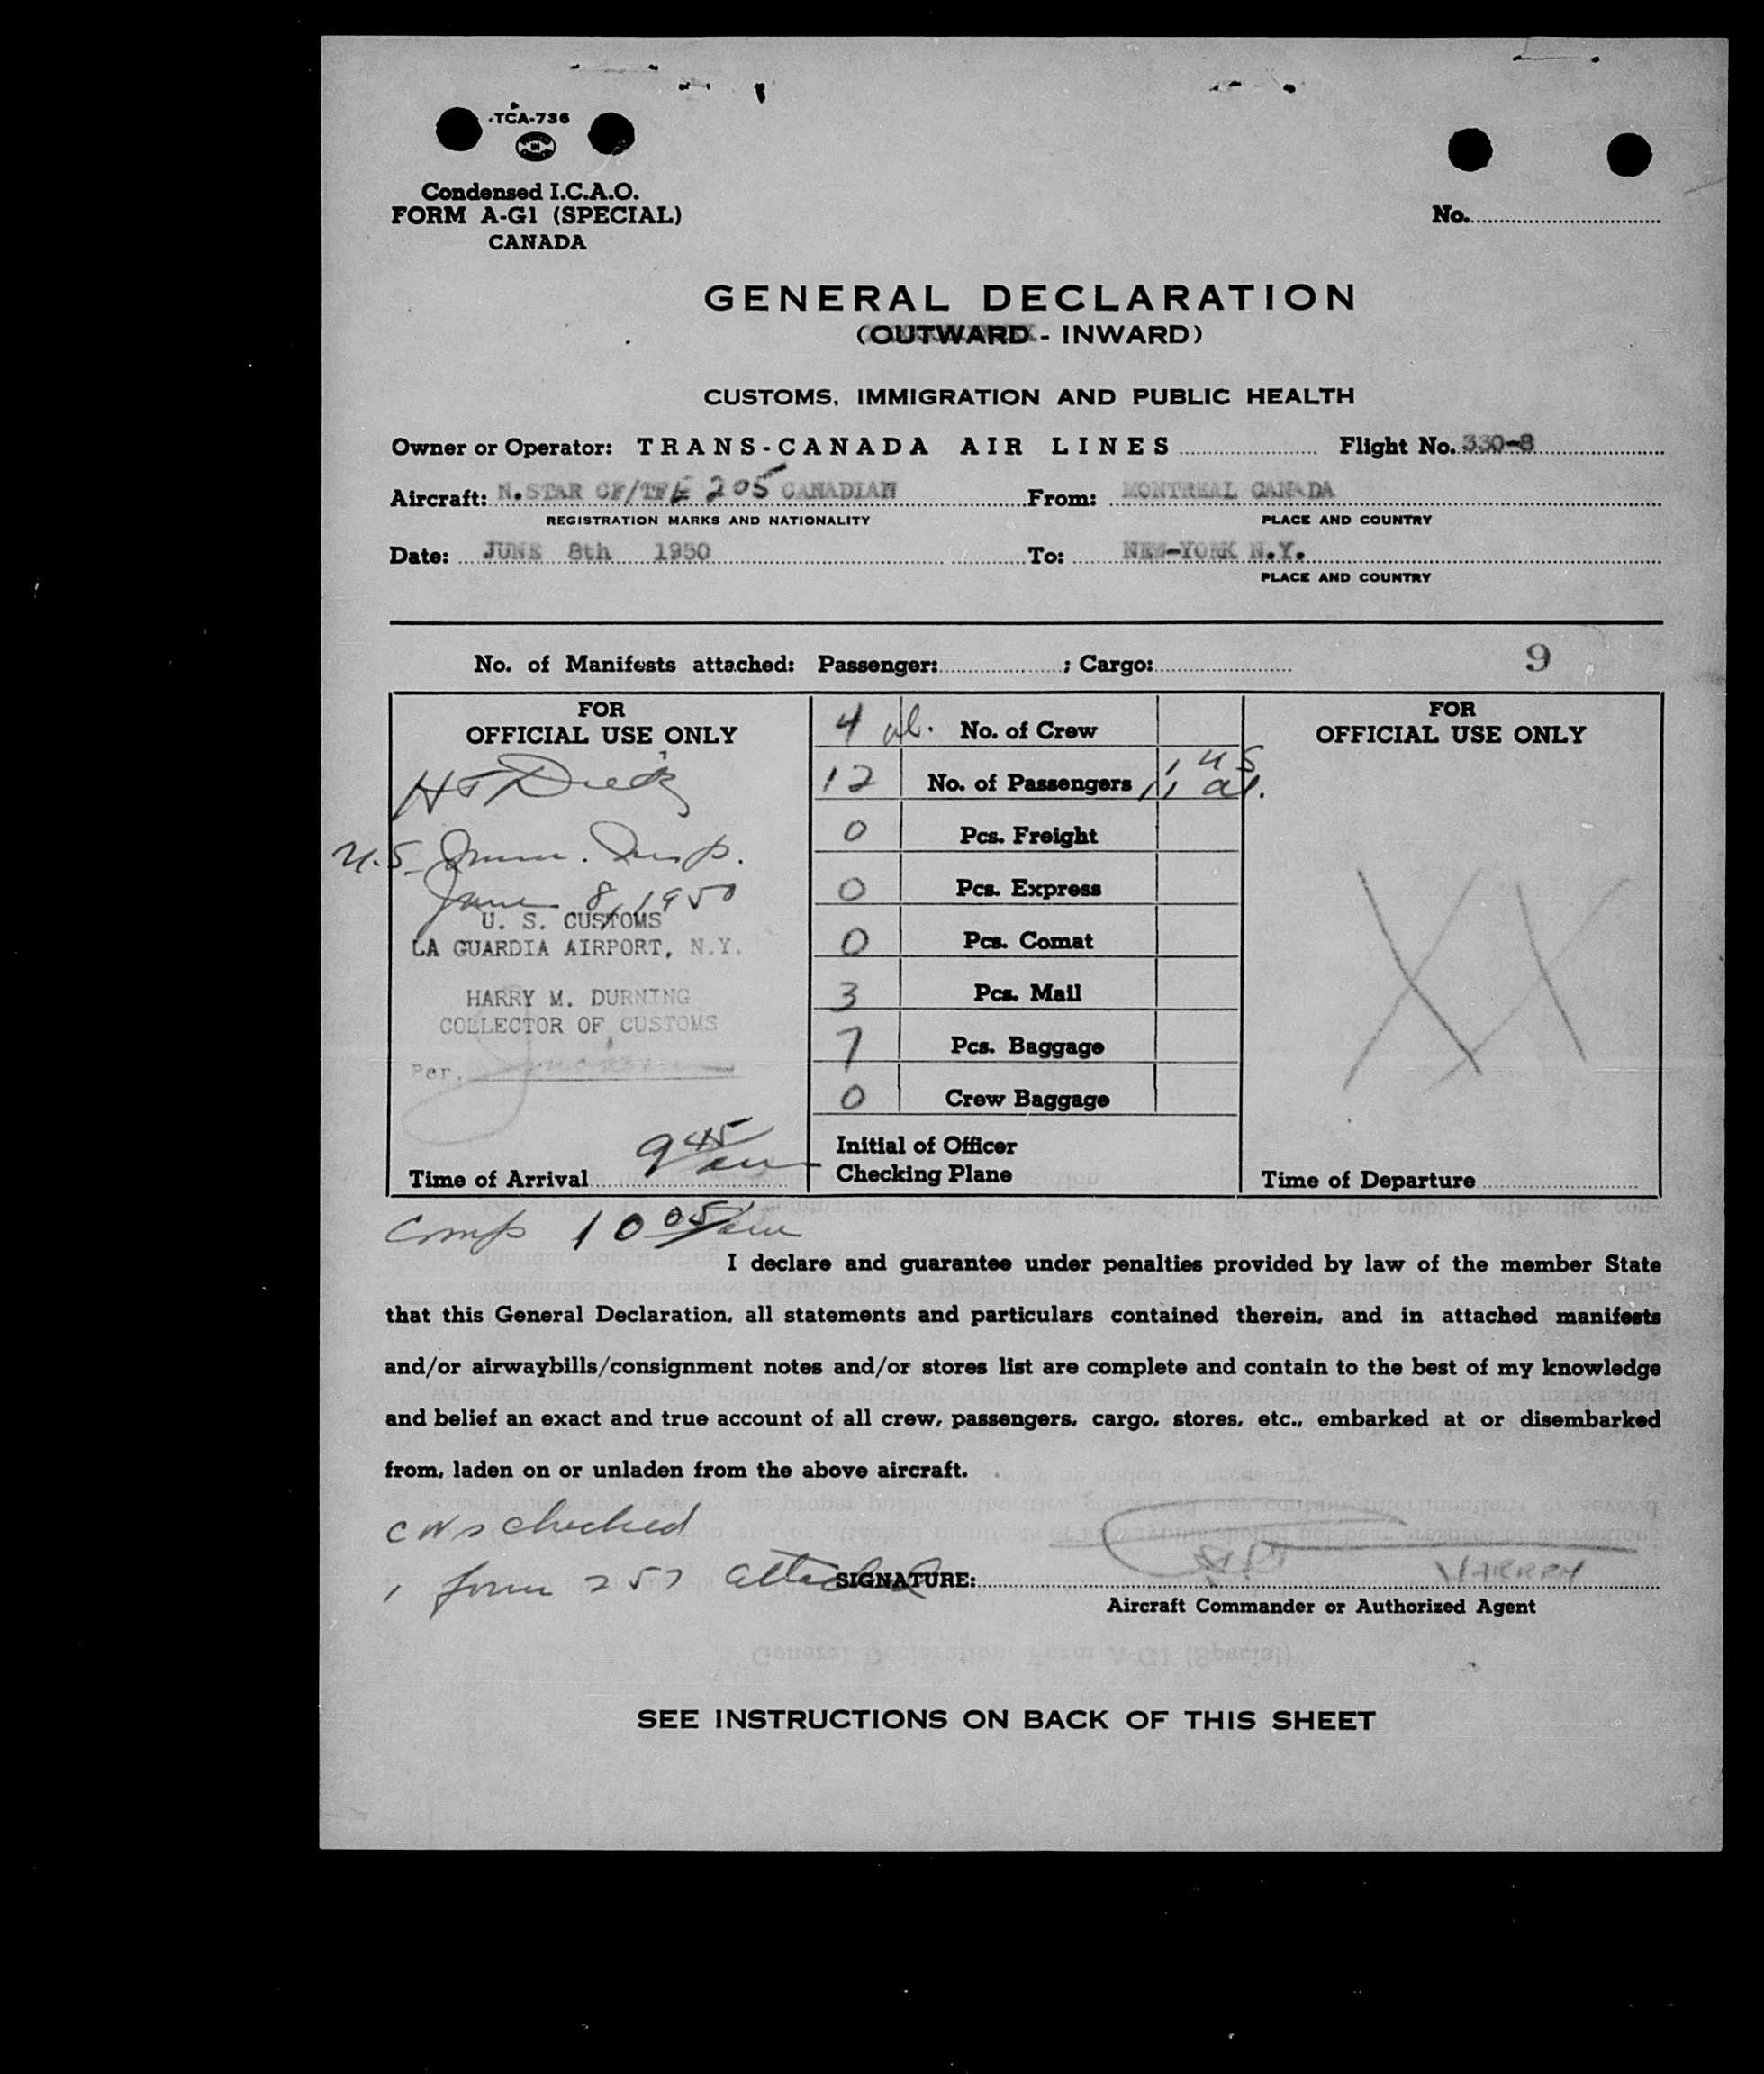 TCA-736
Condensed I.C.A.O.
FORM A-G1 (SPECIAL)
CANADA
No.
GENERAL DECLARATION
(OUTWARD - INWARD)
CUSTOMS, IMMIGRATION AND PUBLIC HEALTH
Owner or Operator: TRANS-CANADA AIR LINES Flight No. 330-8
Aircraft: N.STAR CF/TFE 205 CANADIAN From: MONTREAL CANADA
REGISTRATION MARKS AND NATIONALITY PLACE AND COUNTRY
Date: JUNE 8th 1950 To: NEW-YORK N.Y.
PLACE AND COUNTRY
No. of Manifests attached: Passenger: ; Cargo: 9
FOR
OFFICIAL USE ONLY
U.S. Imm. Insp.
June 8, 1950
U. S. CUSTOMS
LA GUARDIA AIRPORT, N.Y.
HARRY M. DURNING
COLLECTOR OF CUSTOMS
Per.
Time of Arrival 9 45 am
4 al. No. of Crew
12 No. of Passengers 1 US
11 al.
0 Pcs. Freight
0 Pcs. Express
0 Pcs. Comat
3 Pcs. Mail
7 Pcs. Baggage
0 Crew Baggage
Initial of Officer
Checking Plane
FOR
OFFICIAL USE ONLY
XX
Time of Departure
Comp 10 05 am
I declare and guarantee under penalties provided by law of the member State
that this General Declaration, all statements and particulars contained therein, and in attached manifests
and/or airwaybills/consignment notes and/or stores list are complete and contain to the best of my knowledge
and belief an exact and true account of all crew, passengers, cargo, stores, etc., embarked at or disembarked
from, laden on or unladen from the above aircraft.
checked
1 form 257 attached
SIGNATURE:
Aircraft Commander or Authorized Agent
SEE INSTRUCTIONS ON BACK OF THIS SHEET